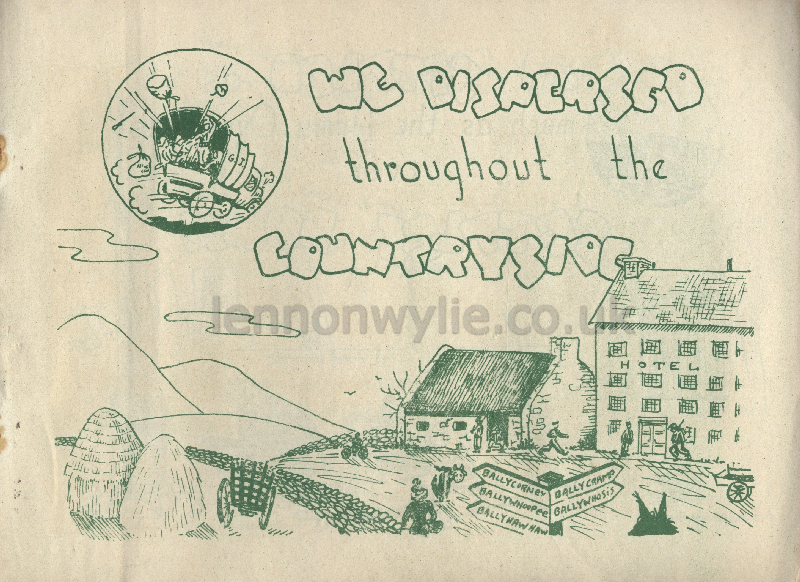 WE DISPERSED
throughout the
COUNTRYSIDE
lennonwylie.co.uk
HOTEL
BALLYCORNEY
BALLYWHOOPEE
BALLYHAWHAW
BALLYCRAMP
BALLYWHOSIS